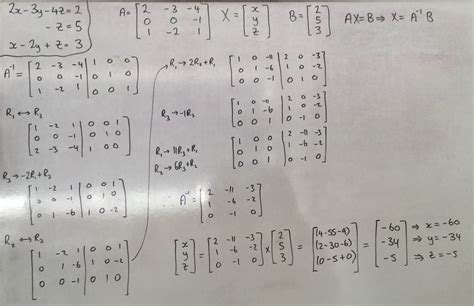 2x-3y-4z=2
-z=5
x-2y+z=3
A= 2 -3 -4
0 0 -1
1 -2 1
X= x
y
z
B= 2
5
3
AX=B ⇒ X=A⁻¹B
A⁻¹= 2 -3 -4 | 1 0 0
0 0 -1 | 0 1 0
1 -2 1 | 0 0 1
R₁ ↔ R₃
1 -2 1 | 0 0 1
0 0 -1 | 0 1 0
2 -3 -4 | 1 0 0
R₃ → -2R₁+R₃
1 -2 1 | 0 0 1
0 0 -1 | 0 1 0
0 1 -6 | 1 0 -2
R₂ ↔ R₃
1 -2 1 | 0 0 1
0 1 -6 | 1 0 -2
0 0 -1 | 0 1 0
R₁ → 2R₂+R₁
1 0 -11 | 2 0 -3
0 1 -6 | 1 0 -2
0 0 -1 | 0 1 0
R₃ → -1R₃
1 0 -11 | 2 0 -3
0 1 -6 | 1 0 -2
0 0 1 | 0 -1 0
R₁ → 11R₃+R₁
1 0 0 | 2 -11 -3
0 1 0 | 1 -6 -2
0 0 1 | 0 -1 0
∴ A⁻¹= 2 -11 -3
1 -6 -2
0 -1 0
x
y
z
= 2 -11 -3
1 -6 -2
0 -1 0
× 2
5
3
= (4-55-9)
(2-30-6)
(0-5+0)
= -60
-34
-5
⇒ x=-60
⇒ y=-34
⇒ z=-5